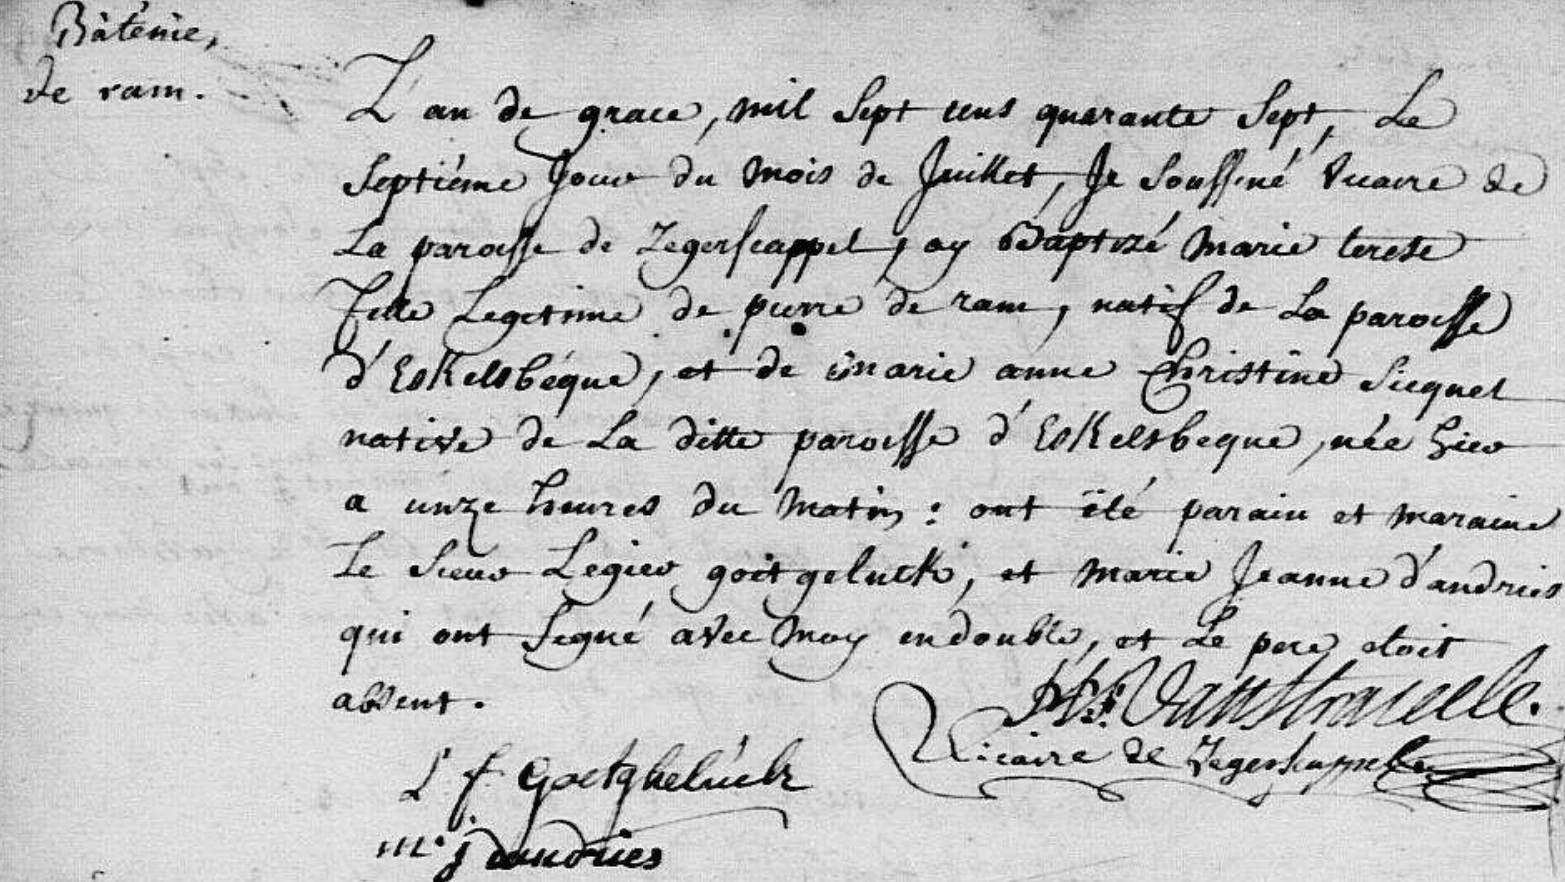 Bâtême,
de ram.
L'an de grace, mil sept cens quarante sept, Le
septiéme jour du mois de Juillet, Je soussiné vicaire de
La paroisse de Zegerscappel, ay Baptizé marie terese
fille Legetime de pierre de ram, natif de La paroisse
d'Eskelsbéque, et de marie anne Christine Sicquet
native de La ditte paroisse d'Eskelsbeque, née hier
a unze heures du matin : ont été parain et maraine
Le sieur Legier goetgeluck, et marie Jeanne d'andries
qui ont segné avec moy en double, et Le pere etoit
absent.
Vanstraceele.
Vicaire de Zegerscappel
L f Goetgheluck
m. j dandries